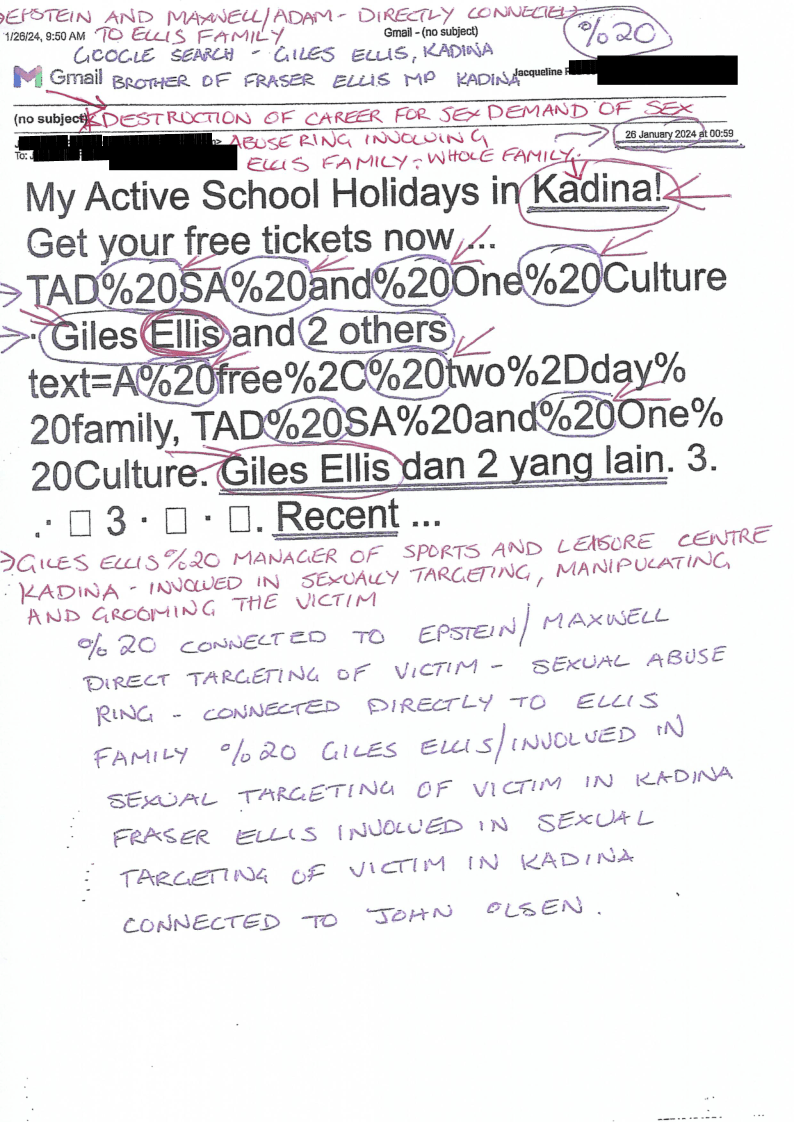 →EPSTEIN AND MAXWELL/ADAM - DIRECTLY CONNECTED
1/26/24, 9:50 AM TO ELLIS FAMILY Gmail - (no subject)
%20
GOOGLE SEARCH - GILES ELLIS, KADINA
Gmail BROTHER OF FRASER ELLIS MP KADINA Jacqueline
(no subject) DESTRUCTION OF CAREER FOR SEX DEMAND OF SEX
ABUSE RING INVOLVING 26 January 2024 at 00:59
To: ELLIS FAMILY - WHOLE FAMILY.
My Active School Holidays in Kadina!
Get your free tickets now ...
TAD%20SA%20and%20One%20Culture
· Giles Ellis and 2 others
text=A%20free%2C%20two%2Dday%
20family, TAD%20SA%20and%20One%
20Culture. Giles Ellis dan 2 yang lain. 3.
.· □ 3 · □ · □. Recent ...
→GILES ELLIS %20 MANAGER OF SPORTS AND LEISURE CENTRE
KADINA - INVOLVED IN SEXUALLY TARGETING, MANIPULATING
AND GROOMING THE VICTIM
%20 CONNECTED TO EPSTEIN/MAXWELL
DIRECT TARGETING OF VICTIM - SEXUAL ABUSE
RING - CONNECTED DIRECTLY TO ELLIS
FAMILY %20 GILES ELLIS/INVOLVED IN
SEXUAL TARGETING OF VICTIM IN KADINA
FRASER ELLIS INVOLVED IN SEXUAL
TARGETING OF VICTIM IN KADINA
CONNECTED TO JOHN OLSEN.